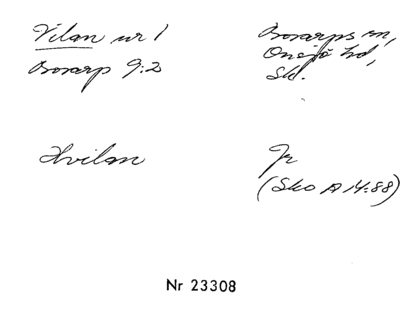 Vilan nr 1
Bosarp 9:2
Bosarps sn,
Onsjö hd,
Sk.
Hvilan
Jr
(Sko A 14:88)
Nr 23308